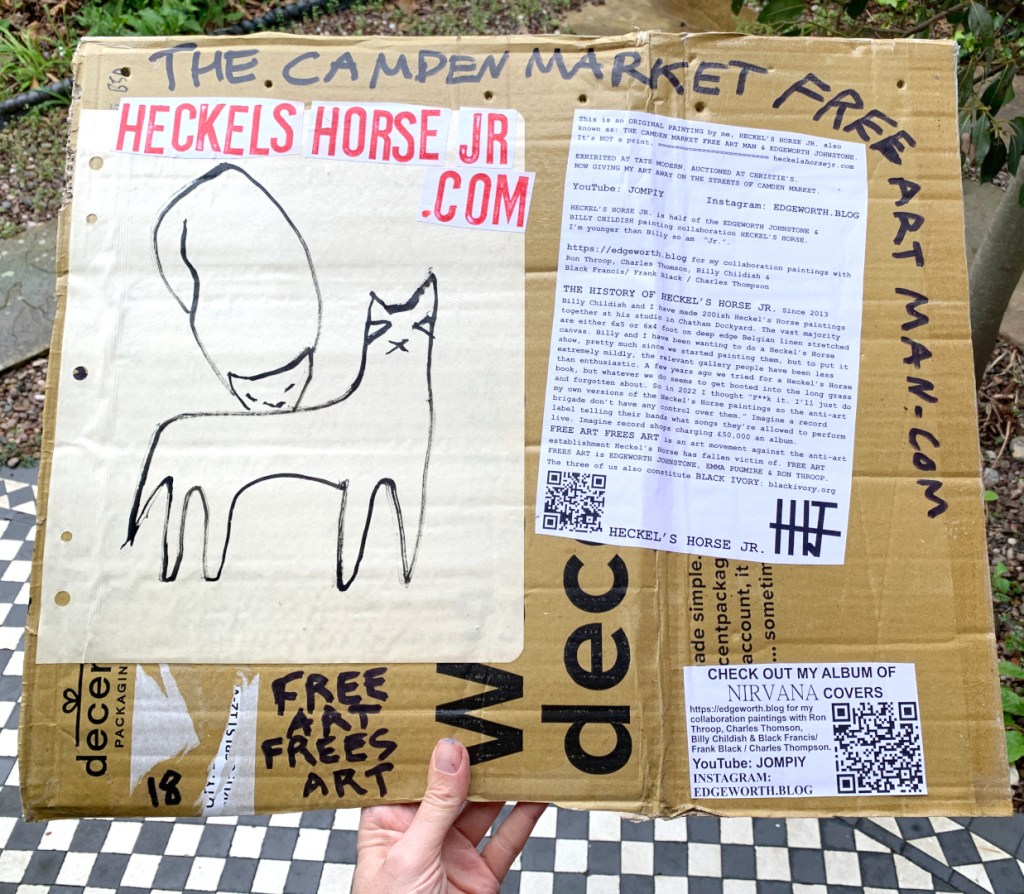 THE CAMDEN MARKET FREE ART MAN-COM
HECKELS HORSE JR
.COM
This is an ORIGINAL PAINTING by me, HECKEL'S HORSE JR. also
known as: THE CAMDEN MARKET FREE ART MAN & EDGEWORTH JOHNSTONE.
It's NOT a print. heckelshorsejr.com
EXHIBITED AT TATE MODERN. AUCTIONED AT CHRISTIE'S.
NOW GIVING MY ART AWAY ON THE STREETS OF CAMDEN MARKET.
YouTube: JOMPIY
Instagram: EDGEWORTH.BLOG
HECKEL'S HORSE JR. is half of the EDGEWORTH JOHNSTONE &
BILLY CHILDISH painting collaboration HECKEL'S HORSE.
I'm younger than Billy so am "Jr.".
https://edgeworth.blog for my collaboration paintings with
Ron Throop, Charles Thomson, Billy Childish &
Black Francis/ Frank Black / Charles Thompson
THE HISTORY OF HECKEL'S HORSE JR. Since 2013
Billy Childish and I have made 200ish Heckel's Horse paintings
together at his studio in Chatham Dockyard. The vast majority
are either 6x5 or 6x4 foot on deep edge Belgian linen stretched
canvas. Billy and I have been wanting to do a Heckel's Horse
show, pretty much since we started painting them, but to put it
extremely mildly, the relevant gallery people have been less
than enthusiastic. A few years ago we tried for a Heckel's Horse
book, but whatever we do seems to get booted into the long grass
and forgotten about. So in 2022 I thought "F**k it. I'll just do
my own versions of the Heckel's Horse paintings so the anti-art
brigade don't have any control over them." Imagine a record
label telling their bands what songs they're allowed to perform
live. Imagine record shops charging £50,000 an album.
FREE ART FREES ART is an art movement against the anti-art
establishment Heckel's Horse has fallen victim of. FREE ART
FREES ART is EDGEWORTH JOHNSTONE, EMMA PUGMIRE & RON THROOP.
The three of us also constitute BLACK IVORY: blackivory.org
HECKEL'S HORSE JR.
decen
PACKAGIN
18
FREE
ART
FREES
ART
w
dec
ade simple.
centpackag
account, it
... sometim
CHECK OUT MY ALBUM OF
NIRVANA COVERS
https://edgeworth.blog for my
collaboration paintings with Ron
Throop, Charles Thomson,
Billy Childish & Black Francis/
Frank Black / Charles Thompson.
YouTube: JOMPIY
INSTAGRAM:
EDGEWORTH.BLOG